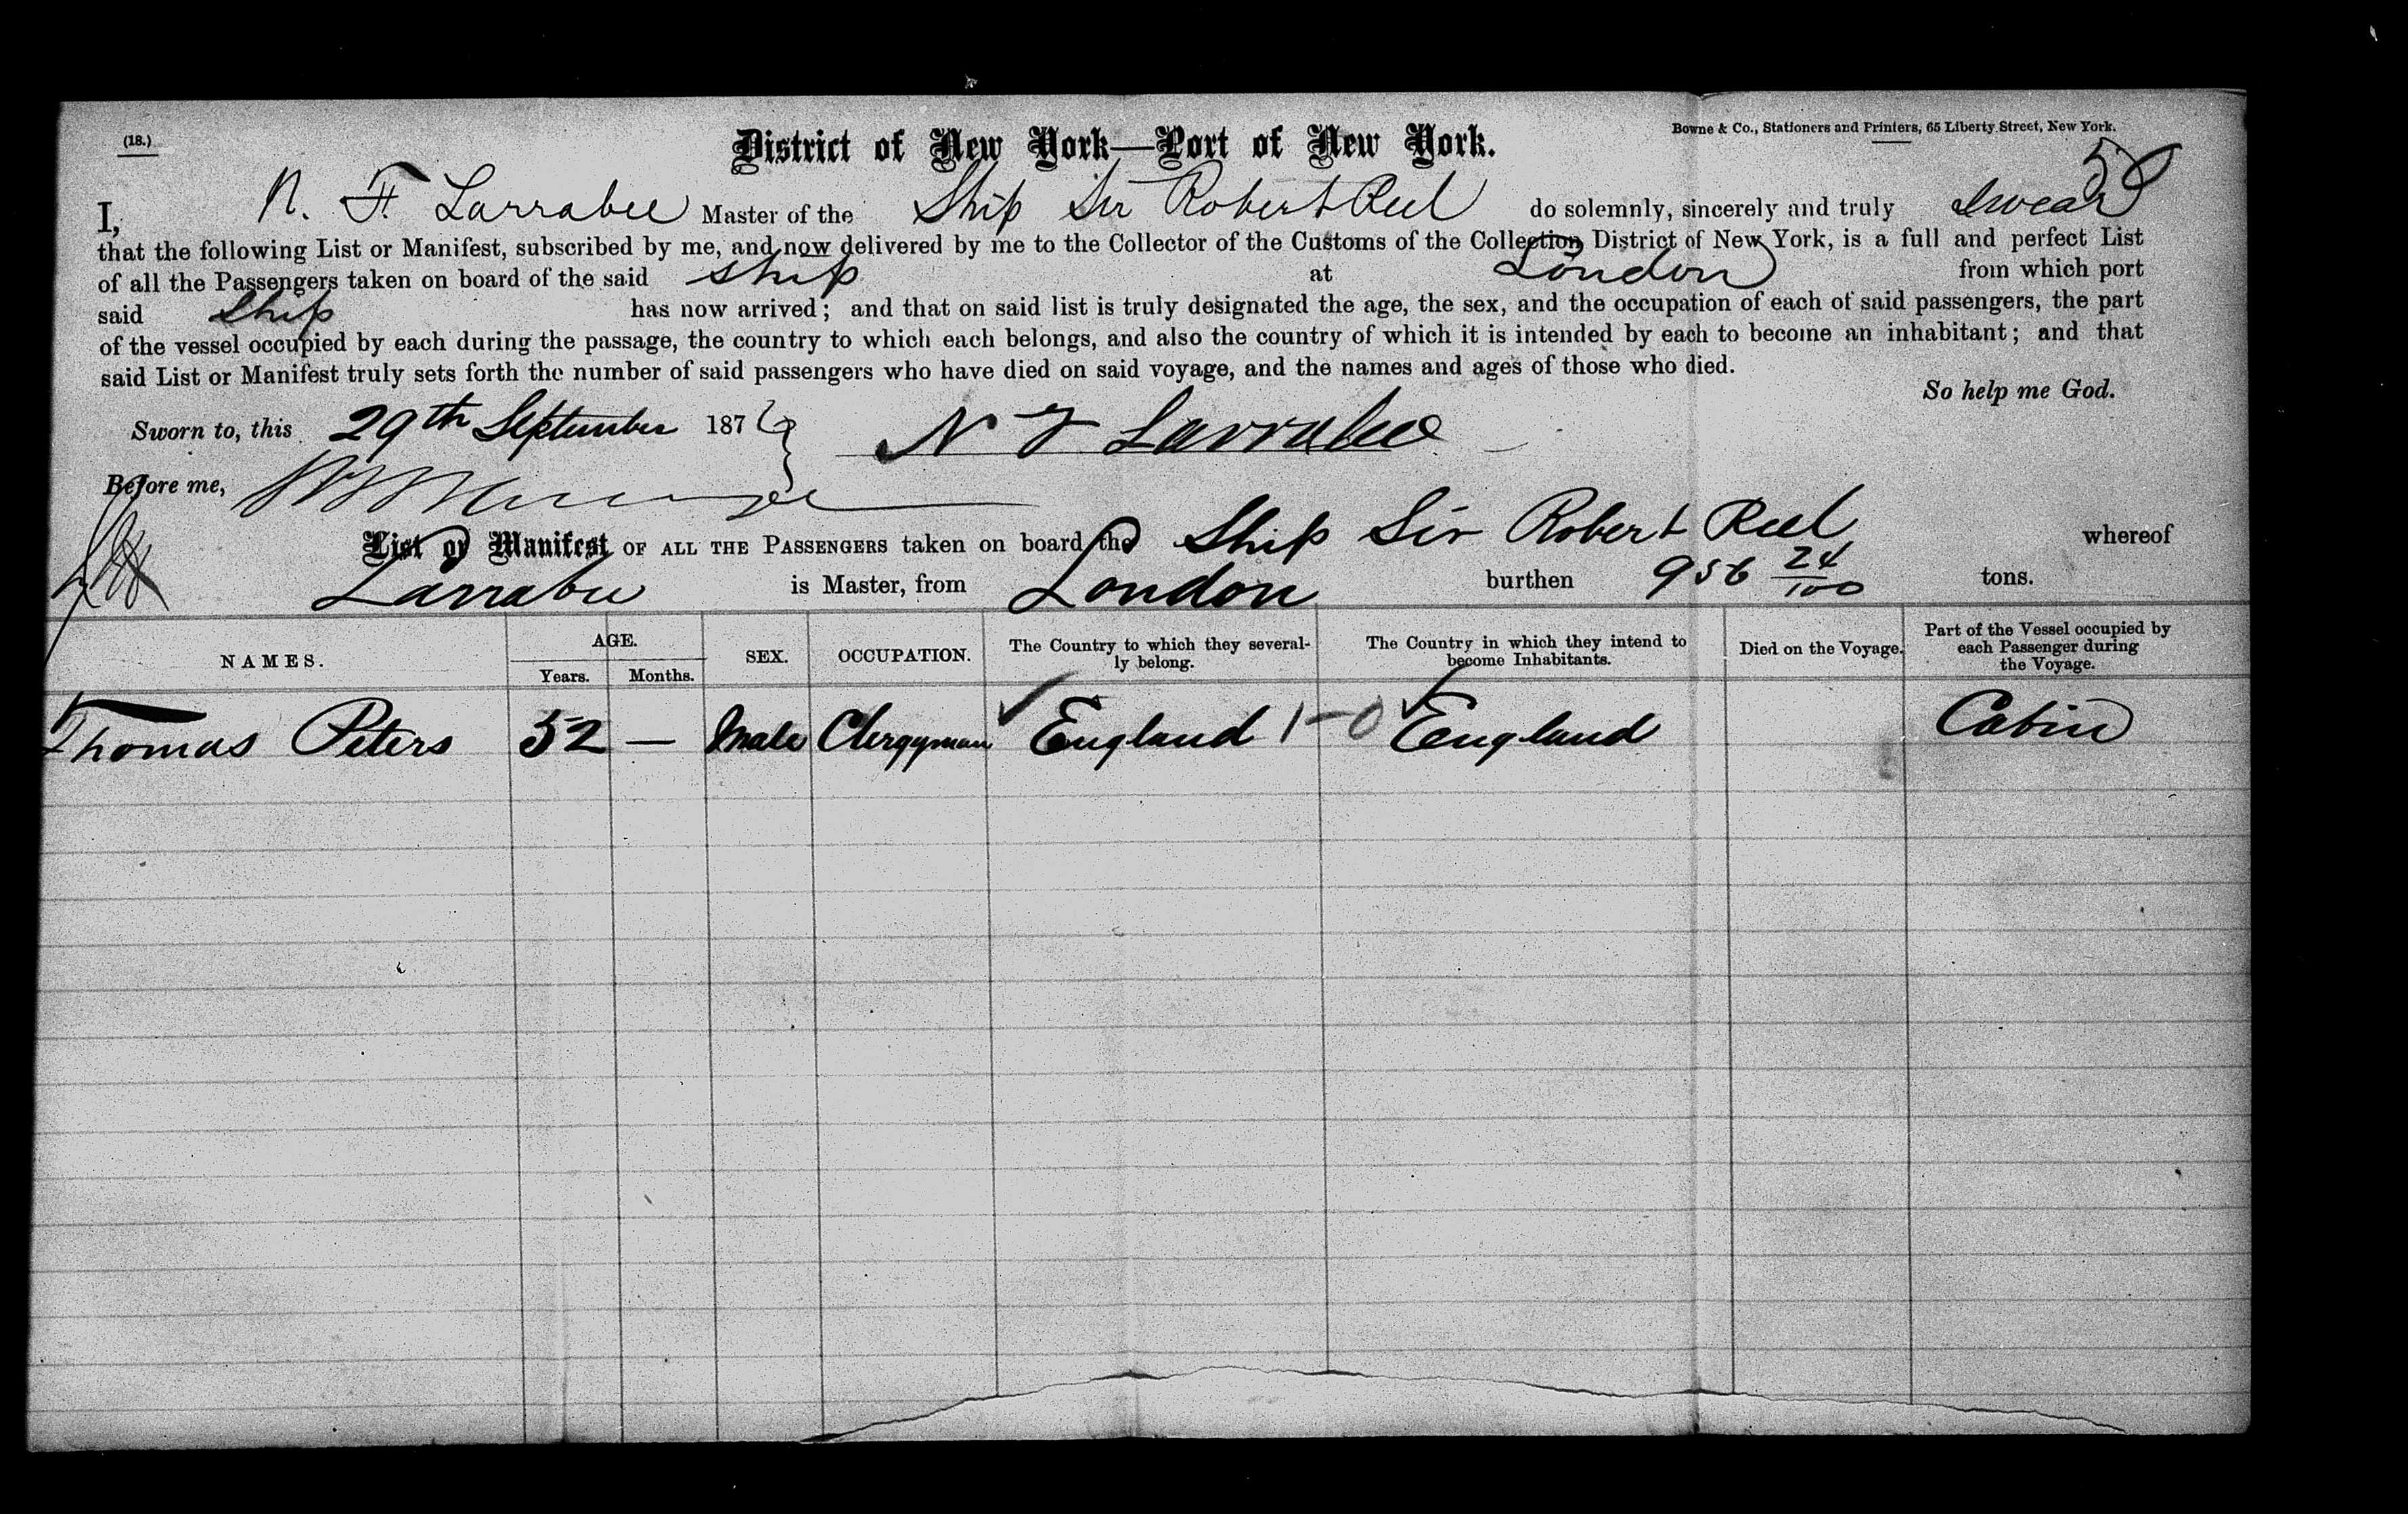 (18.)
District of New York—Port of New York.
Bowne & Co., Stationers and Printers, 65 Liberty Street, New York.
I, N. F. Larrabee Master of the Ship Sir Robert Peel do solemnly, sincerely and truly swear
that the following List or Manifest, subscribed by me, and now delivered by me to the Collector of the Customs of the Collection District of New York, is a full and perfect List
of all the Passengers taken on board of the said ship at London from which port
said Ship has now arrived; and that on said list is truly designated the age, the sex, and the occupation of each of said passengers, the part
of the vessel occupied by each during the passage, the country to which each belongs, and also the country of which it is intended by each to become an inhabitant; and that
said List or Manifest truly sets forth the number of said passengers who have died on said voyage, and the names and ages of those who died.
So help me God.
Sworn to, this 29th September 187
N F Larrabee
Before me,
List or Manifest OF ALL THE PASSENGERS taken on board the Ship Sir Robert Peel whereof
Larrabee is Master, from London burthen 956 24/100 tons.
NAMES. AGE. Years. Months. SEX. OCCUPATION. The Country to which they severally belong. The Country in which they intend to become Inhabitants. Died on the Voyage. Part of the Vessel occupied by each Passenger during the Voyage.
Thomas Peters 52 — Male Clergyman England 1-0 England Cabin